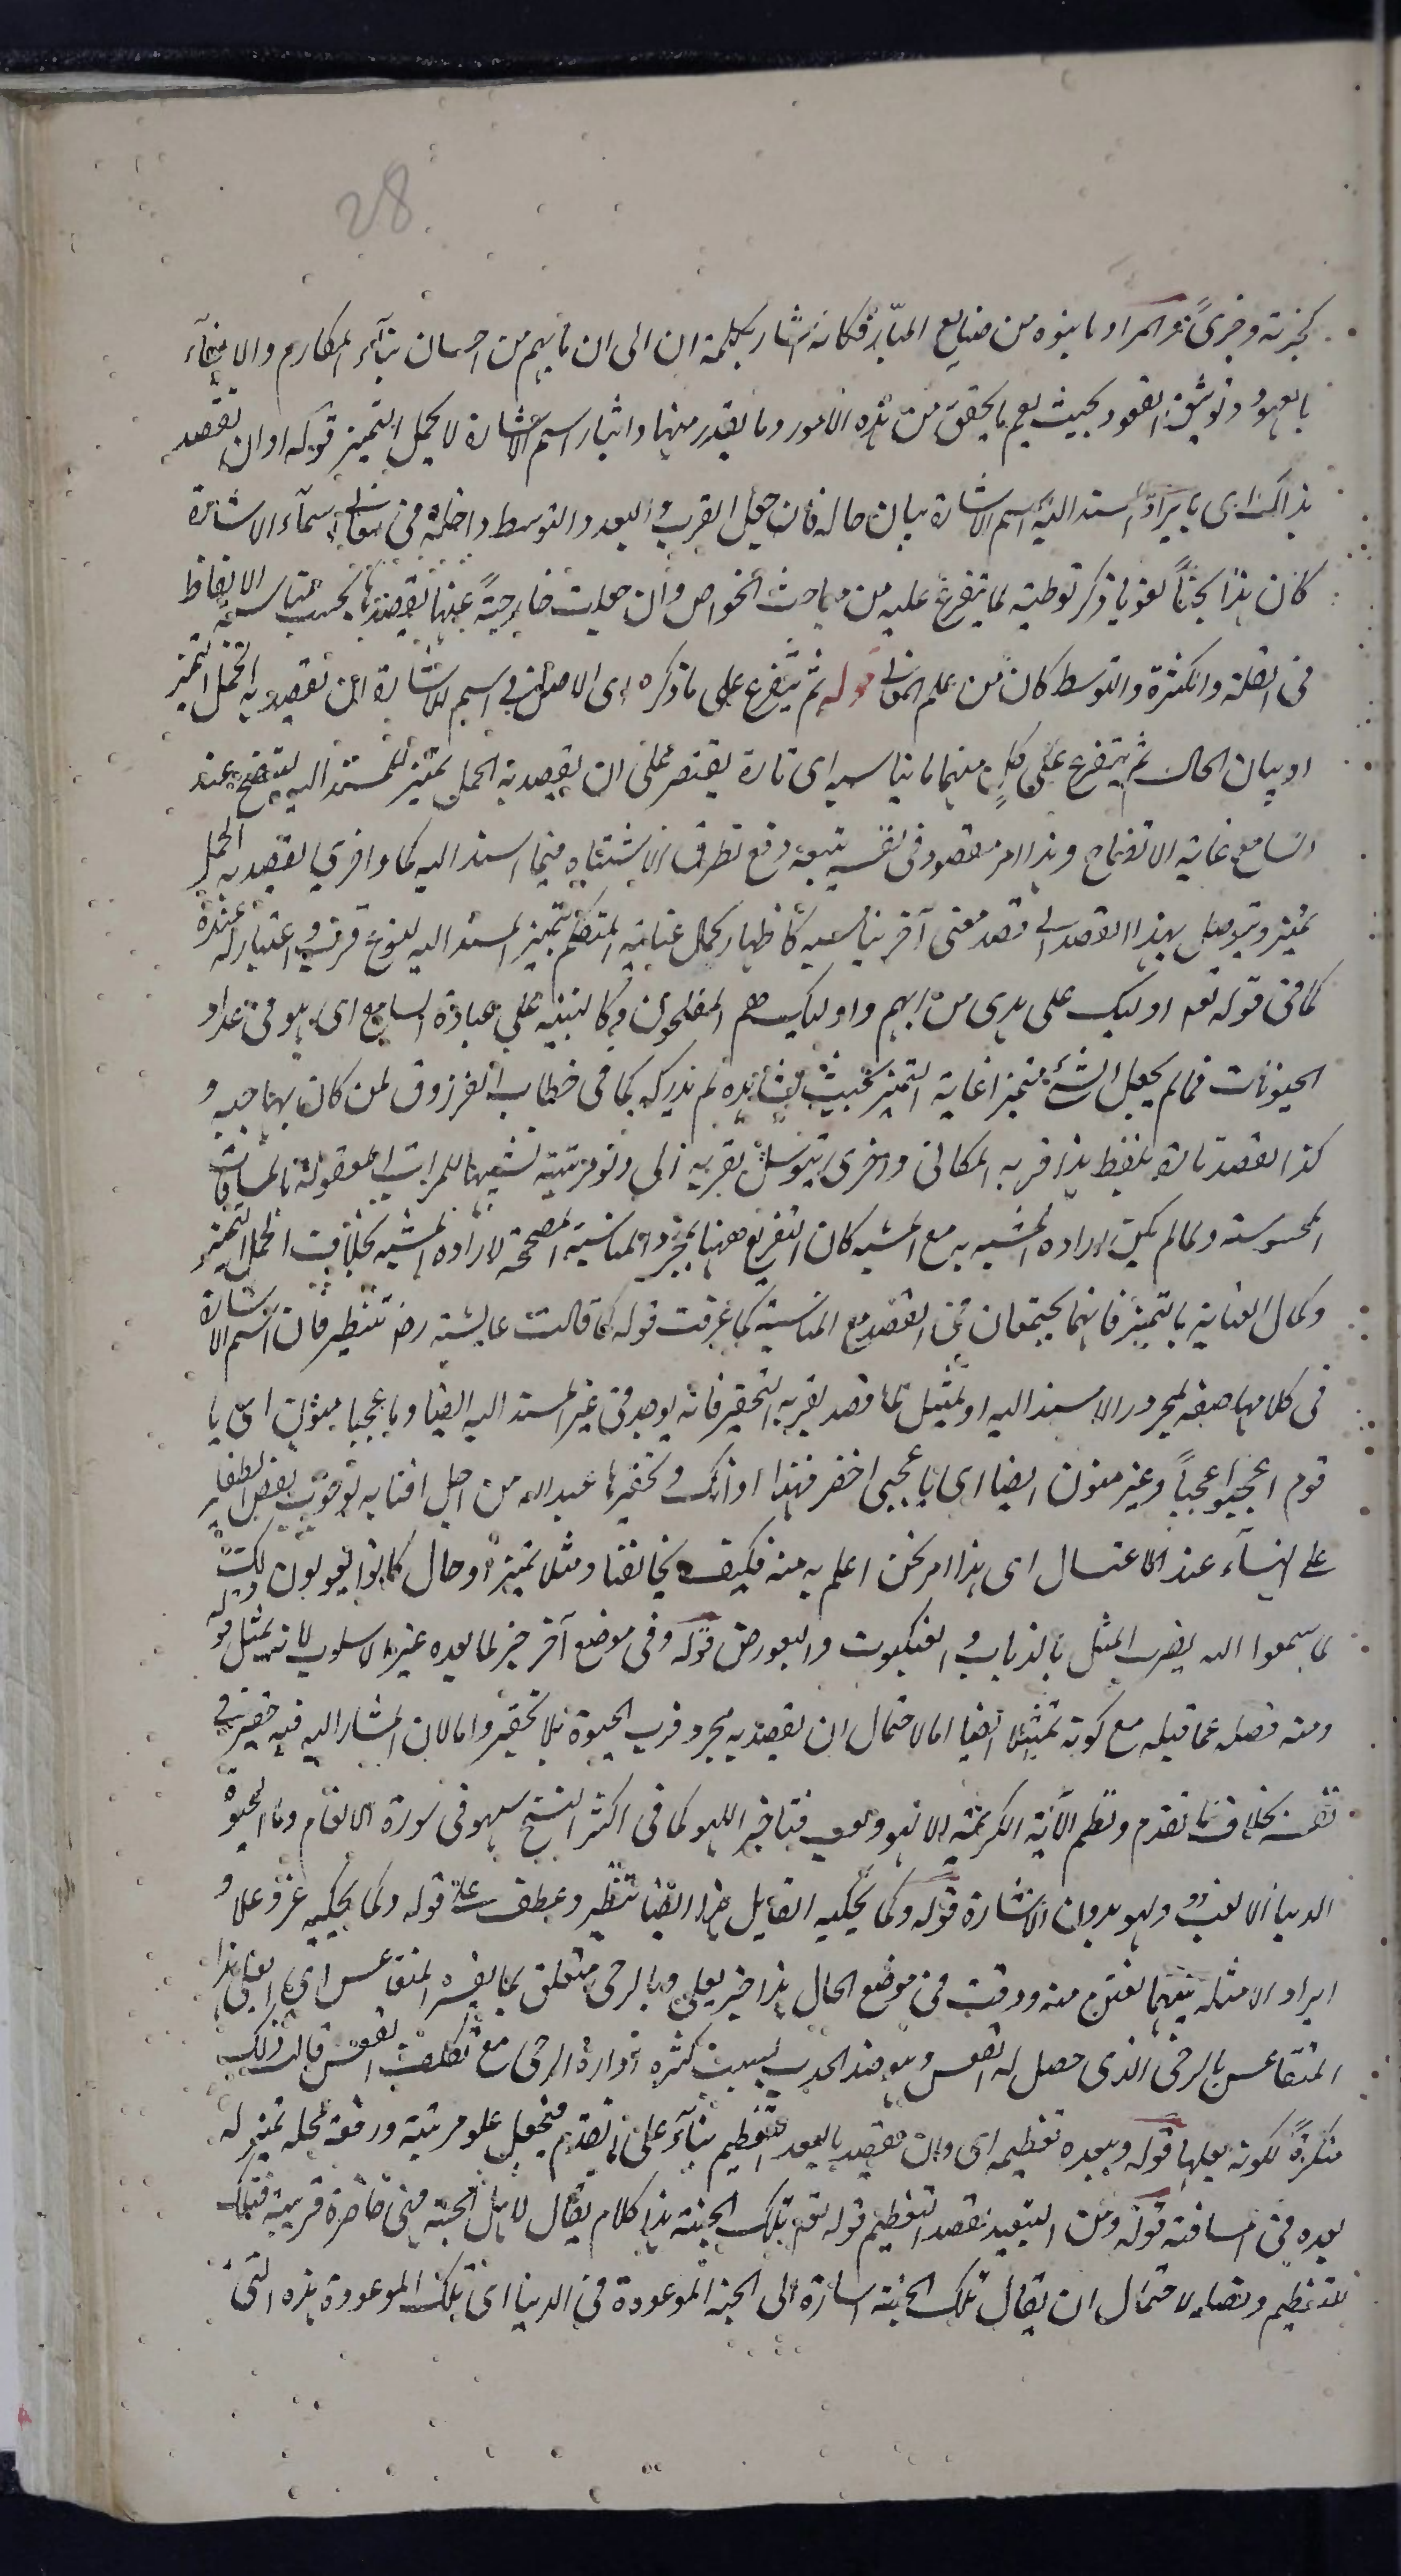 28
كجزية وجزى والمراد ما بنوه من صنايع المبار فكانه اشار بكلمة ان الى ان ما بهم من احسان بناء المكارم والايفاء
بالعهود وتوثيق العقود بحيث يعم ما يحقق من هذه الامور وما يقدر منها وايثار اسم الاشارة لاكمل التميز قوله او ان يقصد
بذاك اى بايراد المسند اليه اسم الاشارة بيان حاله فان جعل القرب والبعد والتوسط داخلة فى معانى اسماء الاشارة
كان هذا بحثاً لغويا ذكر توطية لما يتفرع عليه من مباحث الخواص وان جعلت خارجيةً عنها يقصد بها بحسب مناسبة الالفاظ
فى القلة والكثرة والتوسط كان من علم المعانى قوله ثم يتفرع على ما ذكره اى الاصل فى اسم الاشارة ان يقصد به اكمل التميز
او بيان الحال ثم يتفرع على كلٍ منهما ما يناسبه اى تارة يقتصر على ان يقصد به اكمل تميز للمسند اليه ليتضح عند
السامع غاية الاتضاح وهذا امر مقصود فى نفسه يتبعه دفع تطرق الاشتباه فيما اسند اليه كما واخرى يقصد به اكمل
تميز ويتوصل بهذا القصد الى قصد معنى آخر يناسبه كاظهار كمال عناية المتكلم بتميز المسند اليه لنوع قرب واعتبار له عنده
كما فى قوله تعه اوليك على هدى من ربهم واوليك هم المفلحون وكالتنبيه على عباوة السامع اى هو فى عداد
الحيوانات فما لم يجعل الشئ متميزا غاية التميز بحيث يشاهده لم يدركه كما فى خطاب الفرزدق لمن كان يهاجيه و
كذا لقصد تارة بلفظ هذا قربه المكانى واخرى يتوسل بقربه الى دنو مرتبته تشبيها للمراتب المعقولة بالمسافات
المحسوسة ولما لم يكن ارادة المشبه به مع المشبه كان التفريع ههنا لمجرد المناسبة المصححة لارادة المشبه بخلاف اكمل التميز
وكمال العناية بالتميز فانهما يجتمعان فى القصد مع المناسبة كما عرفت قوله كما قالت عايشه رض تنظير فان اسم الاشارة
فى كلامها صفة لمجرور لا مسند اليه او تمثيل لما قصد بقربه التحقير فانه يوجد فى غير المسند اليه ايضا ويا عجبا منون اى يا
قوم اعجبوا عجباً وغير منون ايضا اى يا عجبى احضر فهذا اوانك وتحقيرها عبد الله من اجل افتايه بوجوب نقض الضفاير
على النساء عند الاغتسال اى هذا امر نحن اعلم به منه فكيف يخالفنا ومثلا تميز او حال كانوا يقولون ذلك
لما سمعوا الله يضرب المثل بالذباب والعنكبوت والبعوض قوله وفى موضع آخر خبر لما بعده غير الاسلوب لانه تمثيل قوله
ومنه فصله عما قبله مع كونه تمثيلا ايضا اما لاحتمال ان يقصد به مجرد قرب الحيوة بلا تحقير واما لان المشار اليه فيه حقير فى
نفسه بخلاف ما تقدم ونظم الآية الكريمة الا لهو ولعب فتاخير اللهو كما فى اكثر النسخ سهو فى سورة الانعام وما الحيوة
الدنيا الا لعب ولهو بدون الاشارة قوله وكما يحكيه القايل هذا ايضا تنظير وعطف على قوله وكما يحكيه عز وعلا و
ايراد الامثلة بينهما تفنن منه ووقت فى موضع الحال هذا خبر بعلى وبالرحى متعلق بما يفسره المتقاعس اى ابعلى هذا
المتقاعس بالرحى الذى حصل له القعس وهو ضد الحدب بسبب كثرة ادارة الرحى مع تكلف القعس قالت ذلك
منكرةً لكونه بعلها قوله وببعده تعظيمه اى وان يقصد بالبعد التعظيم بناءً على ما تقدم فيجعل علو مرتبته ورفعة محله بمنزلة
بعده فى المسافة قوله ومن التبعيد بقصد التعظيم قوله تعه تلك الجنة هذا كلام يقال لاهل الجنة فهى حاضرة قريبة فتلك
للتعظيم وقيل لاحتمال ان يقال تلك الجنة اشارة الى الجنة الموعودة فى الدنيا اى تلك الموعودة هذه التى